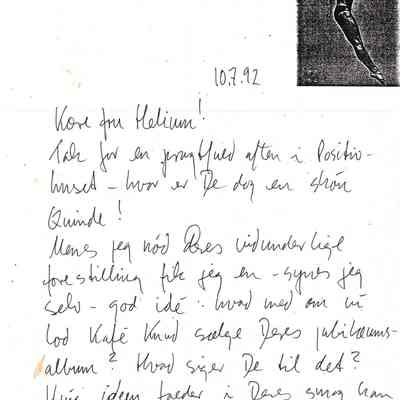 10.7.92
Kære fru Helium!
Tak for en pragtfuld aften i Positiv-
huset – hvor er De dog en skøn
Quinde!
Menes jeg nød Deres vidunderlige
forestilling fik jeg en – synes jeg
selv – god idé: hvad med om vi
lod Kafé Knud sælge Deres jubilæums-
album? Hvad siger De til det?
Hvis ideen falder i Deres smag kan